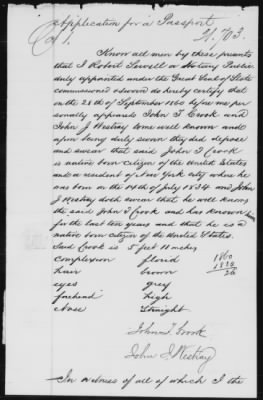 Application for a Passport
No 1.
21,703.
Know all men by these presents
that I Robert Sewell a Notary Public
duly appointed under the Great Seal of State
commissioned & sworn do hereby certify that
on the 21st of September 1860 before me per
sonally appeared John T Crook and
John J Westray to me well known and
upon being duly sworn they did depose
and swear that said John T Crook
is native born citizen of the United States
and a resident of New York city where he
was born on the 14th of July 1834 and John
J Westray doth swear that he well knows
the said John T Crook and has known him
for the last ten years and that he is a
native born citizen of the United States.
Said Crook is 5 feet 11 inches
complexion florid
hair brown
eyes grey
forehead high
Nose Straight
1860
1834
26
John T. Crook
John J Westray
In witness of all of which I the